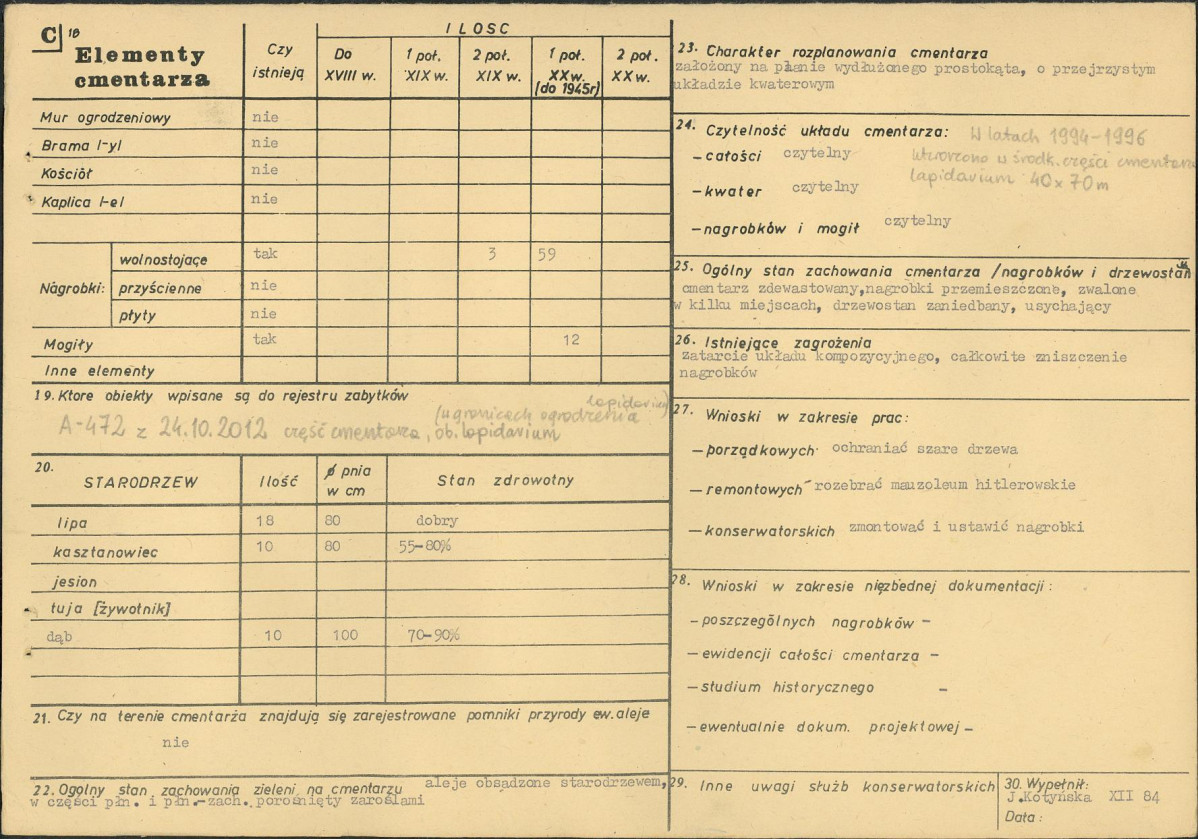 C 18
Elementy cmentarza
Czy istnieją
ILOSC
Do XVIII w.
1 poł. XIX w.
2 poł. XIX w.
1 poł. XX w. (do 1945r)
2 poł. XX w.
Mur ogrodzeniowy nie
Brama l-yl nie
Kościół nie
Kaplica l-el nie
Nagrobki: wolnostojące tak 3 59
przyścienne nie
płyty nie
Mogiły tak 12
Inne elementy
19. Ktore obiekty wpisane są do rejestru zabytków
A-472 z 24.10.2012 część cmentarza, ob. lapidarium
(w granicach ogrodzenia
lapidarium)
20. STARODRZEW Ilość ø pnia w cm Stan zdrowotny
lipa 18 80 dobry
kasztanowiec 10 80 55-80%
jesion
tuja [żywotnik]
dąb 10 100 70-90%
21. Czy na terenie cmentarza znajdują się zarejestrowane pomniki przyrody ew. aleje
nie
22. Ogolny stan zachowania zieleni na cmentarzu aleje obsadzone starodrzewem,
w części płn. i płn.-zach. porośnięty zaroślami
23. Charakter rozplanowania cmentarza
założony na planie wydłużonego prostokąta, o przejrzystym
układzie kwaterowym
24. Czytelność układu cmentarza:
— całości czytelny
— kwater czytelny
— nagrobków i mogił czytelny
W latach 1994-1996
utworzono w środk. części cmentarza
lapidarium 40x70m
25. Ogólny stan zachowania cmentarza /nagrobków i drzewostan
cmentarz zdewastowany,nagrobki przemieszczone, zwalone
w kilku miejscach, drzewostan zaniedbany, usychający
26. Istniejące zagrożenia
zatarcie układu kompozycyjnego, całkowite zniszczenie
nagrobków
27. Wnioski w zakresie prac:
— porządkowych ochraniać szare drzewa
— remontowych rozebrać mauzoleum hitlerowskie
— konserwatorskich zmontować i ustawić nagrobki
28. Wnioski w zakresie niezbędnej dokumentacji:
— poszczególnych nagrobków —
— ewidencji całości cmentarza —
— studium historycznego —
— ewentualnie dokum. projektowej —
29. Inne uwagi służb konserwatorskich
30. Wypełnił:
J.Kotyńska XII 84
Data: